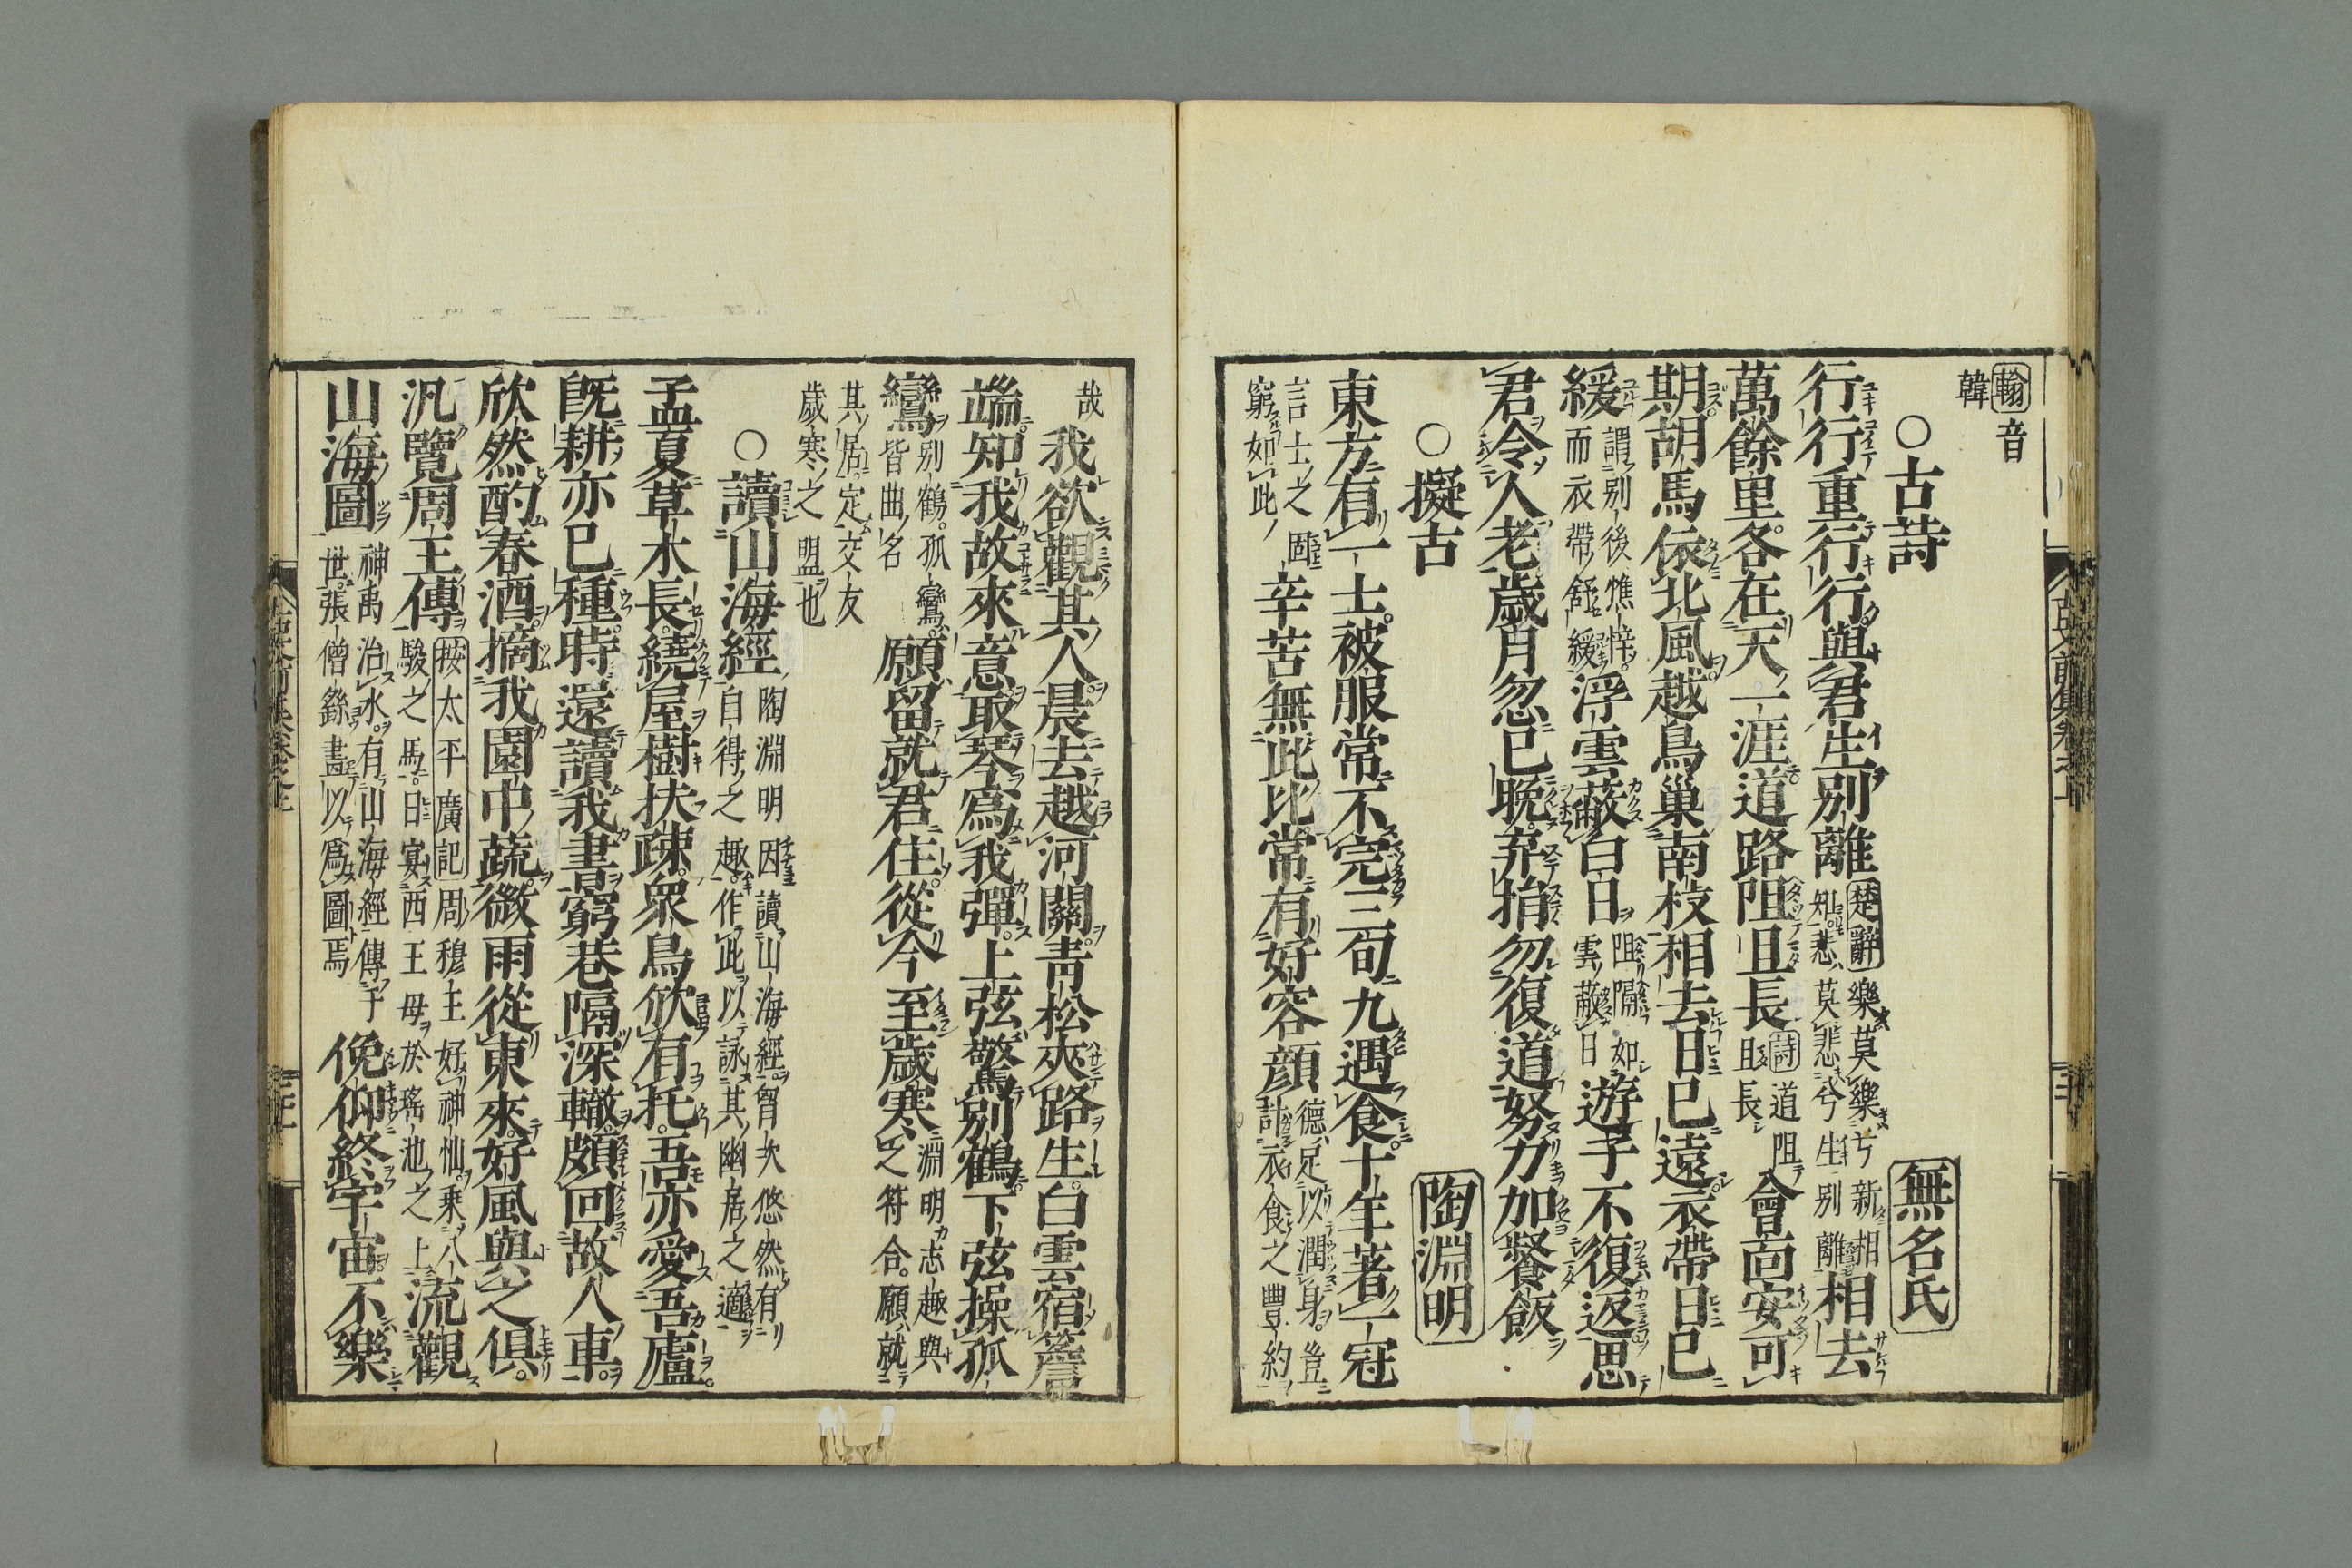 翰音
韓
○古詩 無名氏
行行重行行與君生別離楚辭樂莫樂兮新相知悲莫悲兮生別離相去
萬餘里各在天一涯道路阻且長詩道阻且長會面安可
期胡馬依北風越鳥巢南枝相去日已遠衣帶日已
緩謂別後憔悴而衣帶舒緩浮雲蔽白日阻隔如雲蔽日遊子不復返思
君令人老歲月忽已晩弃捐勿復道努力加餐飯
○擬古 陶淵明
東方有一士被服常不完三旬九遇食十年著一冠
言士之固窮如此辛苦無此比常有好容顔德足以潤身豈計衣食之豐約
哉我欲觀其人晨去越河關靑松夾路生白雲宿簷
端知我故來意取琴爲我彈上弦驚別鶴下弦操孤
鸞別鶴孤鸞皆曲名願留就君住從今至歲寒淵明志趣與之符合願就
其居定交友
歲寒之盟也
○讀山海經陶淵明因讀山海經胷次悠然有自得之趣作此以詠其幽居之適
孟夏草木長繞屋樹扶疎衆鳥欣有托吾亦愛吾廬
旣耕亦已種時還讀我書窮巷隔深轍頗回故人車
欣然酌春酒摘我園中蔬微雨從東來好風與之俱
汎覽周王傳按太平廣記周穆王好神仙乘八駿之馬日宴西王母於瑤池之上流觀
山海圖神禹治水有山海經傳于世張僧繇畫以爲圖焉俛仰終宇宙不樂